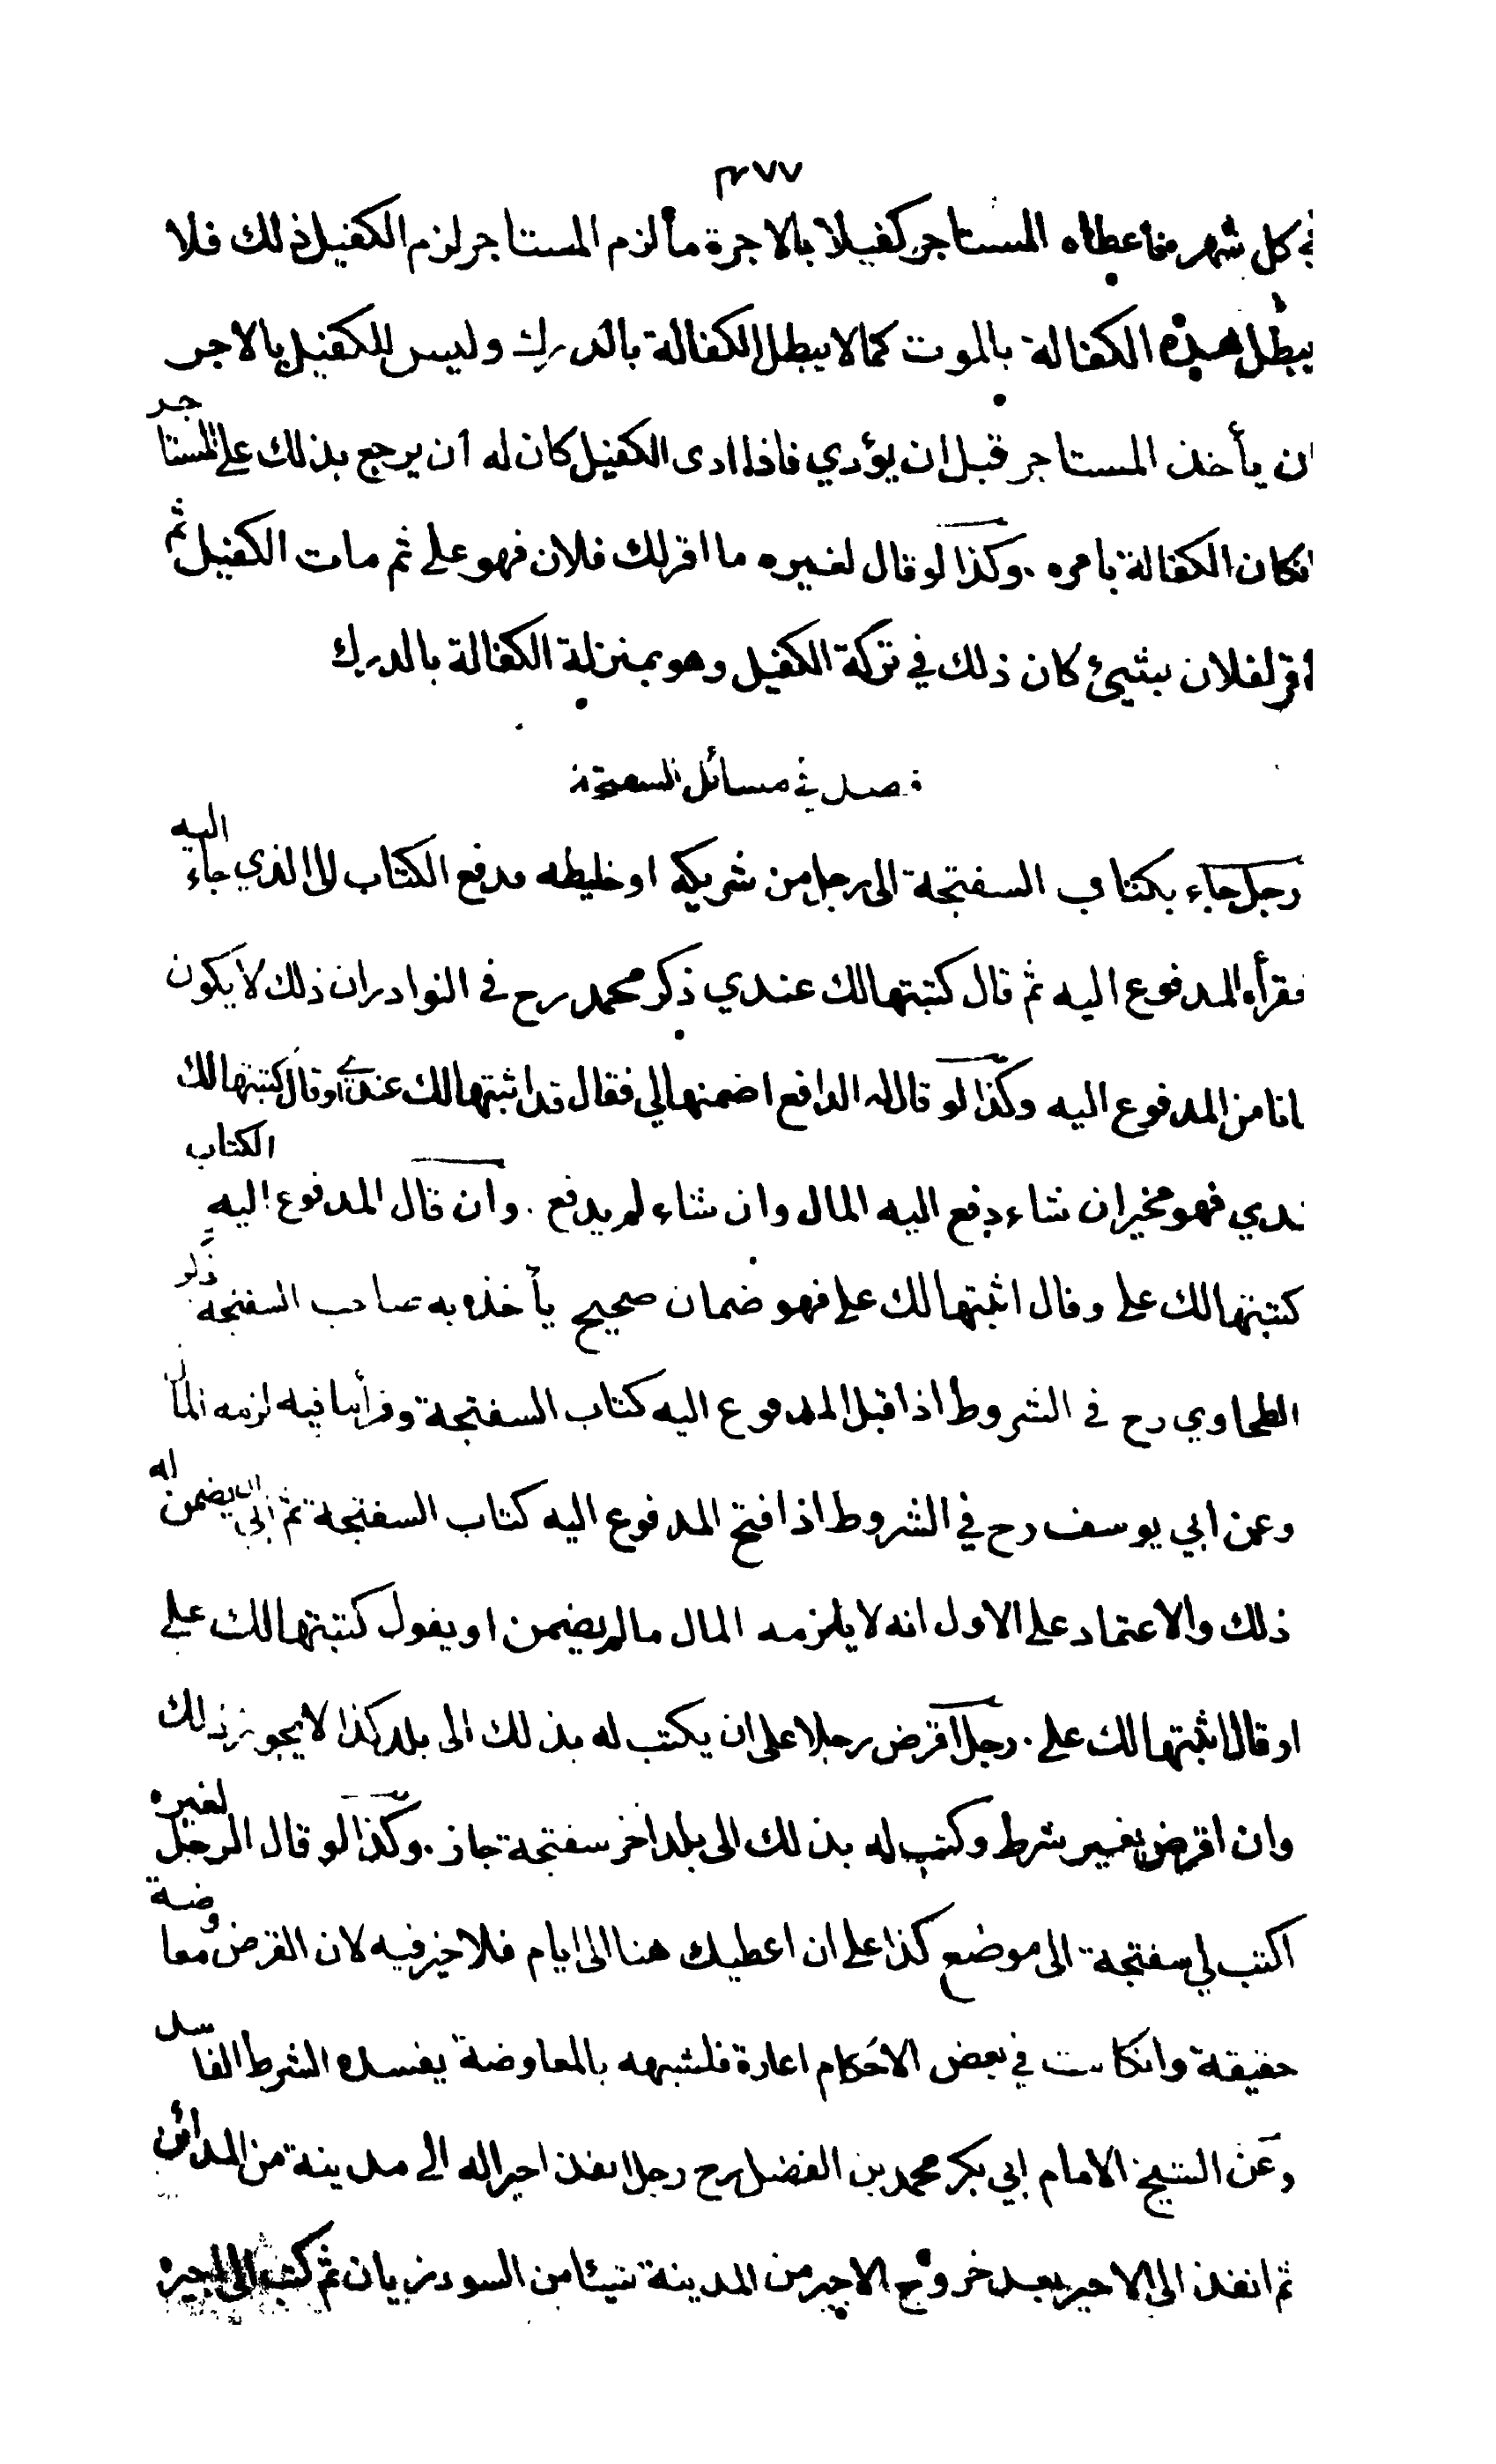 ٣٧٧
في كل شهر فاعطاه المستاجر كفيلا بالاجرة ما لزم المستاجر لزم الكفيل ذلك فلا
يبطل هذه الكفالة بالموت كما لا يبطل الكفالة بالدرك وليس للكفيل بالاجر
ان يأخذ المستاجر قبل ان يؤدي فاذا ادى الكفيل كان له أن يرجع بذلك على المستاجر
انكان الكفالة بامره . وكذا لو قال لغيره ما اقر لك فلان فهو علي ثم مات الكفيل ثم
أقر لفلان بشيئ كان ذلك في تركة الكفيل وهو بمنزلة الكفالة بالدرك
فصل في مسائل السفتجة
رجل جاء بكتاب السفتجة الى رجل من شريكه او خليطه فدفع الكتاب الى الذي جاء اليه
فقرأه المدفوع اليه ثم قال كتبتها لك عندي ذكر محمد رح في النوادر ان ذلك لا يكون
مانا من المدفوع اليه وكذا لو قال له الدافع اضمنها لي فقال قد اثبتها لك عندي او قال كتبتها لك
ندي فهو مخير ان شاء دفع اليه المال وان شاء لم يدفع . وان قال المدفوع اليه الكتاب
كتبتها لك علي وقال اثبتها لك علي فهو ضمان صحيح يأخذه به صاحب السفتجة ذكر
الطحاوي رح في الشروط اذا قبل المدفوع اليه كتاب السفتجة وقرأ ما فيه لزمه المال
وعن ابي يوسف رح في الشروط اذا فتح المدفوع اليه كتاب السفتجة ثم ابى ان يضمن له
ذلك والاعتماد على الاول انه لا يلزمه المال ما لم يضمن او يقول كتبتها لك علي
او قال اثبتها لك علي . رجل اقرض رجلا على ان يكتب له بذلك الى بلد كذا لا يجوز ذلك
وان اقرض بغير شرط وكتب له بذلك الى بلد اخر سفتجة جاز . وكذا لو قال الرجل لغيره
اكتب لي سفتجة الى موضع كذا على ان اعطيك هنا الى ايام فلا خير فيه لان القرض معاوضة
حقيقة وانكانت في بعض الاحكام اعارة فلشبهه بالمعاوضة يفسده الشرط الفاسد
وعن الشيخ الامام ابي بكر محمد بن الفضل رح رجل انفذ اجيرا له الى مدينة من المدائن
ثم انفذ الى الاجير بعد خروج الاجير من المدينة شيئا من السودزيان ثم كتب الى اجيره